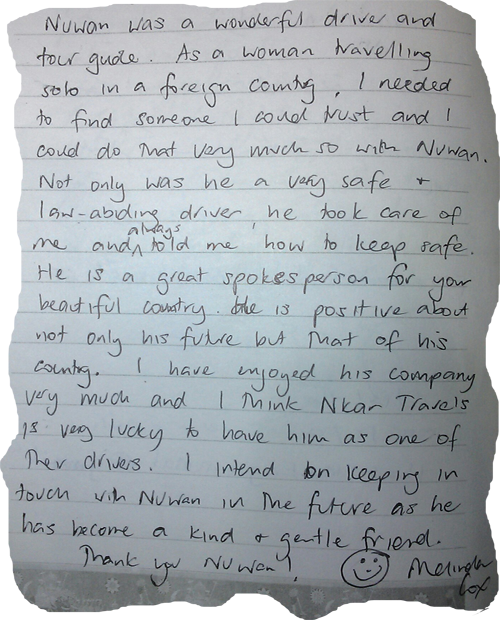 Nuwan was a wonderful drive and
tour gude. As a woman travelling
solo in a foreign country, I needed
to find someone I could trust and I
could do that very much so with Nuwan.
Not only was he a very safe +
law-abiding driver, he took care of
always
me and told me how to keep safe.
He is a great spokesperson for your
beautiful country. He is positive about
not only his future but that of his
country. I have enjoyed his company
very much and I think Nkar Travels
is very lucky to have him as one of
their drivers. I intend on keeping in
touch with Nuwan in the future as he
has become a kind + gentle friend.
Thank you Nuwan! Melinda
Cox